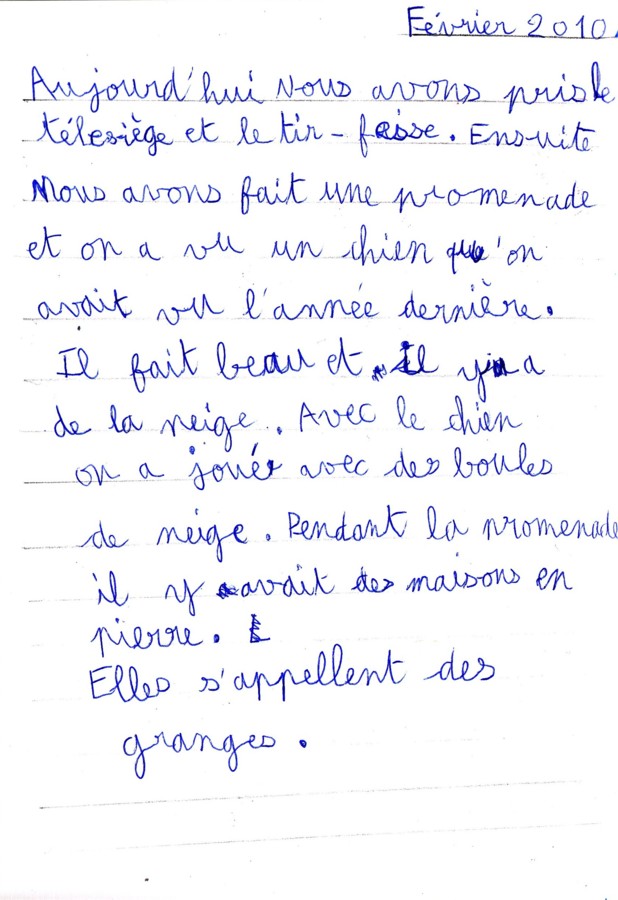 Février 2010.
Aujourd'hui Nous avons pris le
télésiège et le tir-fesse. Ensuite
Nous avons fait une promenade
et on a vu un chien qu'on
avait vu l'année dernière.
Il fait beau et Il y a
de la neige. Avec le chien
on a jouér avec des boules
de neige. Pendant la promenade
il y avait des maisons en
pierre.
Elles s'appellent des
granges.